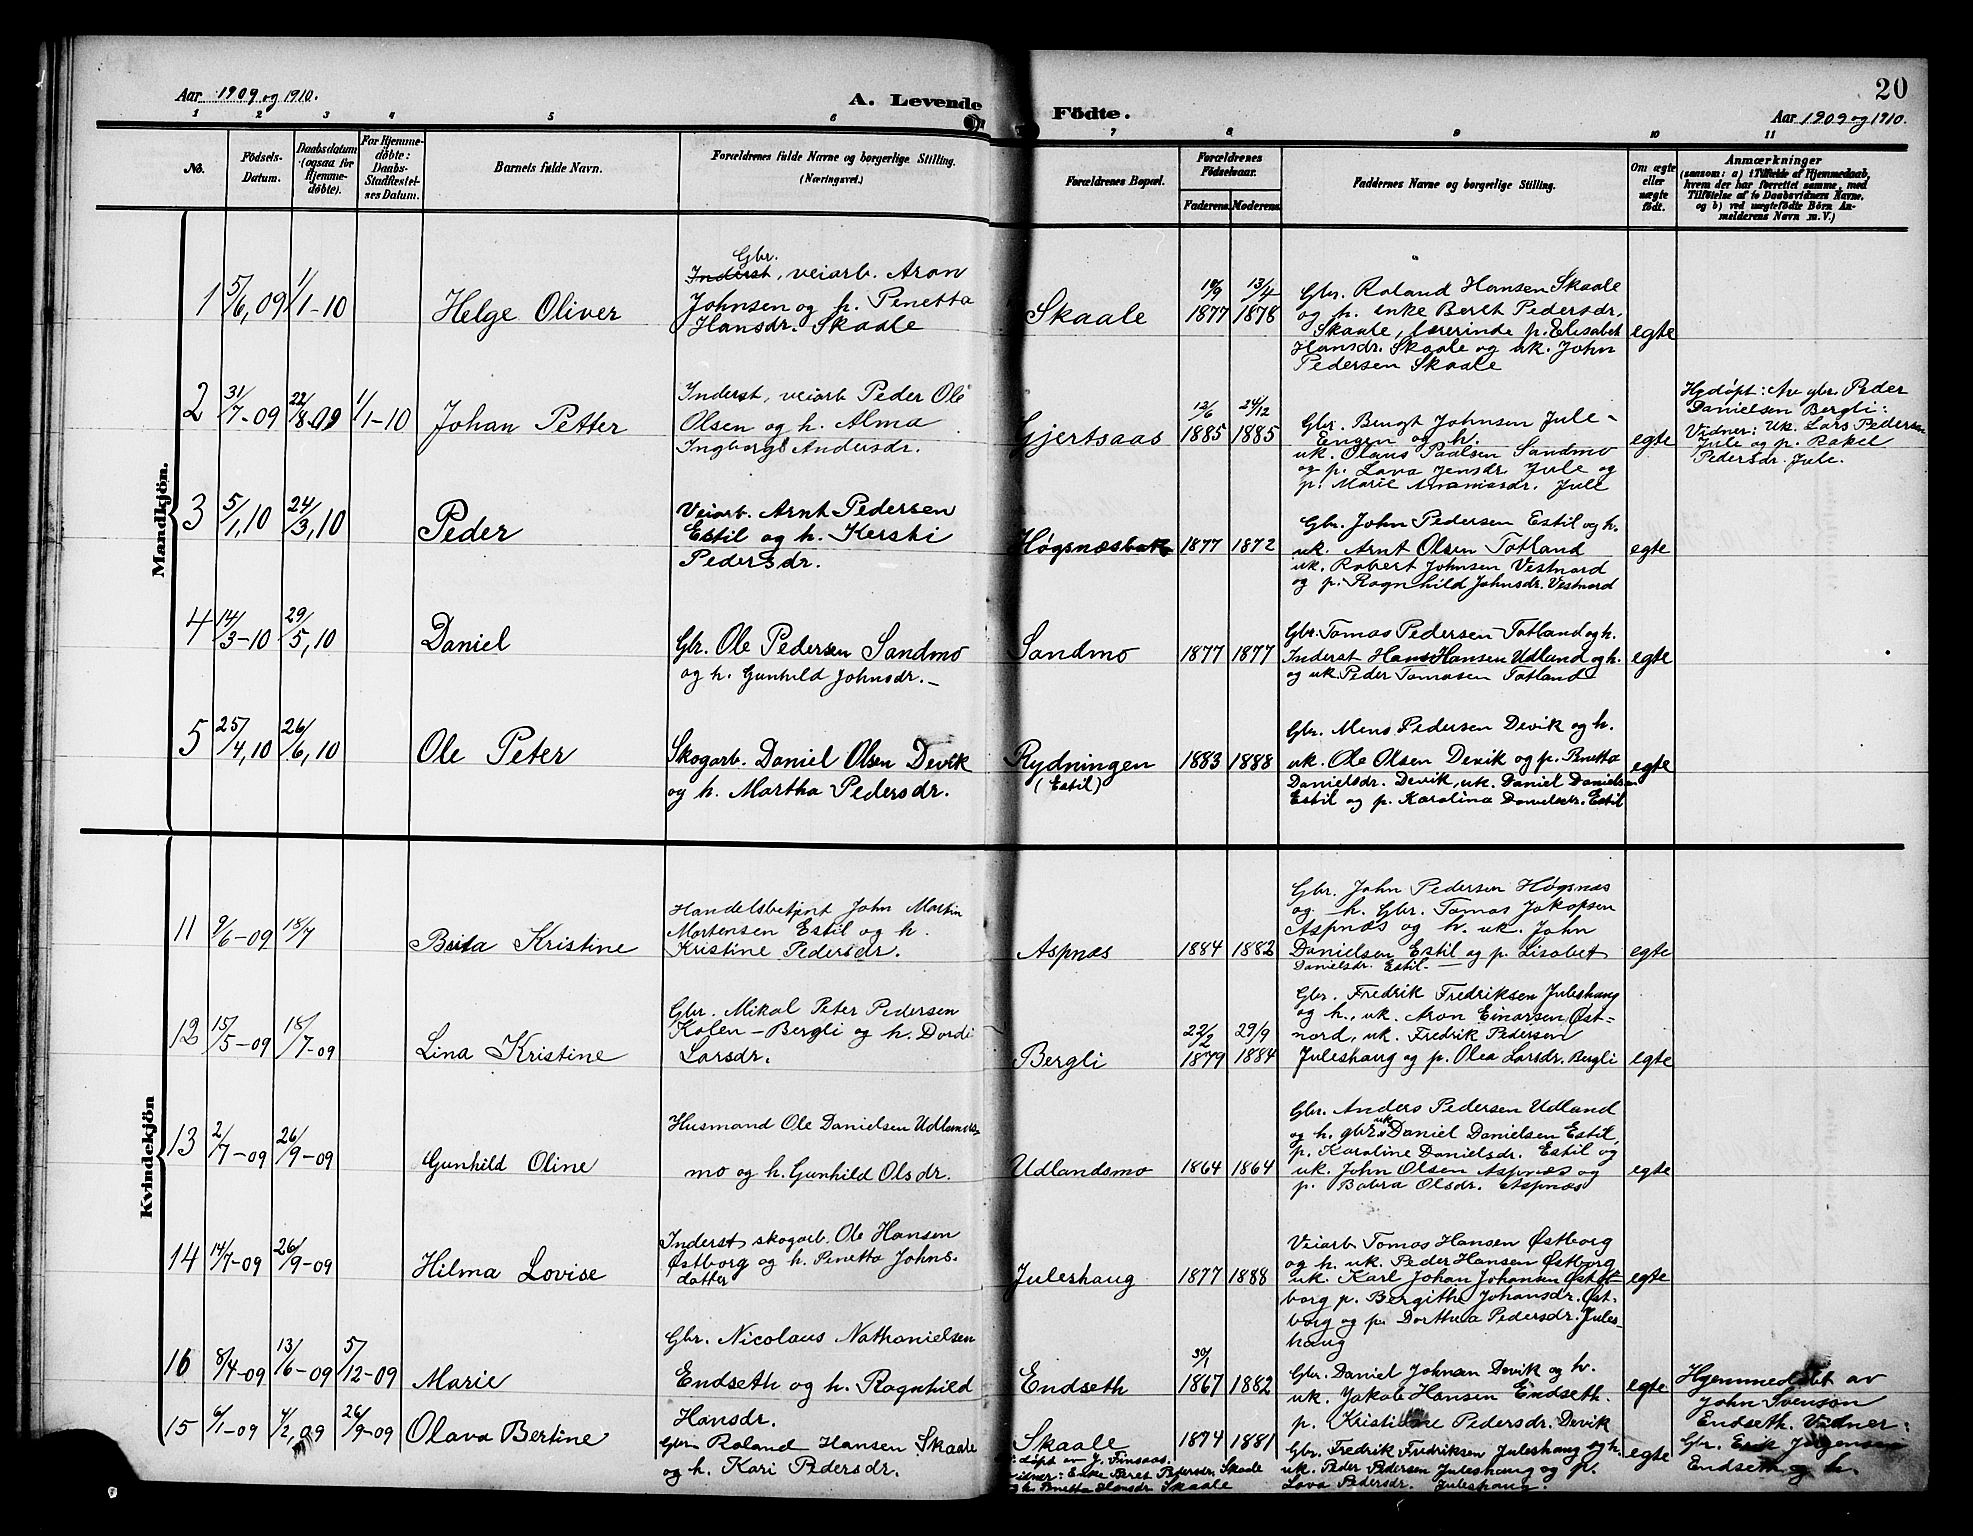 20
Aar 1909 og 1910.
A. Levende Födte.
Aar 1909 og 1910.
1 2 3 4 5 6 7 8 9 10 11
No.
Födsels-Datum.
Daabsdatum (ogsaa for Hjemmedöbte).
For Hjemmedöbte: Daabs-Stadfæstelses Datum.
Barnets fulde Navn.
Forældrenes fulde Navne og borgerlige Stilling.
(Næringsvei.)
Forældrenes Bopæl.
Forældrenes Födselsaar.
Faderens. Moderens.
Faddernes Navne og borgerlige Stilling.
Om ægte eller uægte födt.
Anmærkninger
(saasom: a) i Tilfælde af Hjemmedaab,
hvem der har forrettet samme, med
Tilföielse af to Daabsvidners Navne,
og b) ved uægtefödte Börn Anmelderens Navn m. V.)
Mandkjön.
1 5/6, 09 1/1-10
Helge Oliver
Gbr.
Inderst, veiarb. Aron
Johnsen og h. Penetta
Hansdr. Skaale
Skaale
10/9 1877 13/4 1878
Gbr. Roland Hansen Skaale
og h. enke Beret Pedersdr.
Skaale, lærerinde p. Elisabet
Hansdr. Skaale og uk. John
Pedersen Skaale
egte
2 31/7-09 22/8-09 1/1-10
Johan Petter
Inderst, veiarb Peder Ole
Olsen og h. Alma
Ingborg Andersdr.
Gjertsaas
12/6 1885 24/12 1885
Gbr. Bengt Johnsen Jule-
Engen og h.
uk. Olaus Paalsen Sandmo
og p. Lava Jensdr. Jule og
p. Marie Ananiasdr. Jule
egte
Hjdøpt: Av gbr. Peder
Danielsen Bergli:
Vidner: Uk. Lars Pedersen
Jule og p. Rakel
Pedersdr. Jule.
3 5/1, 10 24/3, 10
Peder
Veiarb. Arnt Pedersen
Estil og h. Kersti
Pedersdr.
Høgsnæsbak
1877 1872
Gbr. John Pedersen Estil og h.
uk. Arnt Olsen Totland
uk. Robert Johnsen Vestnord
og p. Ragnhild Johnsdr. Vestnord
egte
4 14/3-10 29/5, 10
Daniel
Gbr. Ole Pedersen Sandmo
og h. Gunhild Johnsdr.-
Sandmo
1877 1877
Gbr. Tomas Pedersen Totland og h.
Inderst Hans Hansen Udland og h.
og uk. Peder Tomasen Totland
egte
5 25/4, 10 26/6, 10
Ole Peter
Skogarb. Daniel Olsen Devik
og h. Martha Pedersdr.
Rydningen
(Estil)
1883 1888
Gbr. Mens Pedersen Devik og h.
uk. Ole Olsen Devik og p. Penetta
Danielsdr. Devik, uk. Daniel Danielsen
Estil og p. Karolina Danielsdr. Estil
egte
Kvindekjön
11 9/6-09 18/7
Brita Kristine
Handelsbetjent John Martin
Mortensen Estil og h.
Kristine Pedersdr.
Aspnæs
1884 1882
Gbr. John Pedersen Høgsnæs
og h. Gbr. Tomas Jakopsen
Aspnæs og h. uk. John
Danielsen Estil og p. Lisabet
Danielsdr. Estil-
egte
12 15/5-09 18/7-09
Lina Kristine
Gbr. Mikal Peter Pedersen
Kolen-Bergli og h. Dordi
Larsdr.
Bergli
22/2 1879 29/9 1884
Gbr. Fredrik Fredriksen Juleshaug
og h., uk. Aron Einarsen Øst-
nord, uk. Fredrik Pedersen
Juleshaug og p. Olea Larsdr. Bergli
egte
13 2/7-09 26/9-09
Gunhild Oline
Husmand Ole Danielsen Udlands-
mo og h. Gunhild Olsdr.
Udlandsmo
1864 1864
Gbr. Anders Pedersen Udland
og h. gbr. uk Daniel Danielsen Estil,
p. Karoline Danielsdr. Estil og
uk. John Olsen Aspnæs og
p. Babra Olsdr. Aspnæs
egte
14 14/7-09 26/9-09
Hilma Lovise
Inderst skogarb. Ole Hansen
Østborg og h. Penetta Johns-
datter
Juleshaug
1877 1888
Veiarb Tomas Hansen Østborg
og h. uk. Peder Hansen Østborg
uk. Karl Johan Johansen Øst-
borg p. Bergithe Johansdr. Øst-
borg og p. Dorthea Pedersdr. Jules-
haug
egte
16 8/4-09 13/6-09 5/12-09
Marie
Gbr. Nicolaus Nathanielsen
Endseth og h. Ragnhild
Hansdr.
Endseth
30/1 1867 1882
Gbr. Daniel Johnsn Devik og h.
uk. Jakob Hansen Endseth.
p. Kristine Pedersdr. Devik
egte
Hjemmedøbt av
John Svenson
Endseth. Vidner:
Gbr. Erik Jørgensen
Endseth og h.
15 6/1-09 4/2, 09 26/9-09
Olava Bertine
Gbr. Roland Hansen Skaale
og h. Kari Pedersdr.
Skaale
1874 1881
Gbr. Fredrik Fredriksen Juleshaug og h.
uk. Peder Pedersen Juleshaug og p.
Lava Pedersdr. Juleshaug.
egte
døpt av J. Finsaas.
Vidner: Enke Beret Pedersdr. Skaale
og h. Penetta Hansdr Skaale